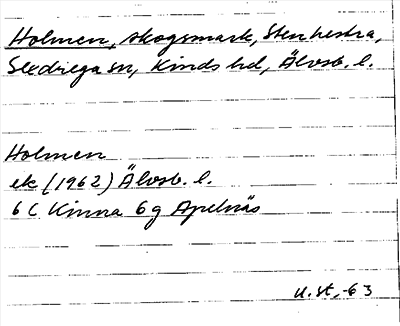 Holmen, skogsmark, Stenhestra,
Sexdrega sn, Kinds hd, Älvsb. l.
Holmen
ek (1962) Älvsb. l.
6 C Kinna 6 g Apelnäs
U. St. -63